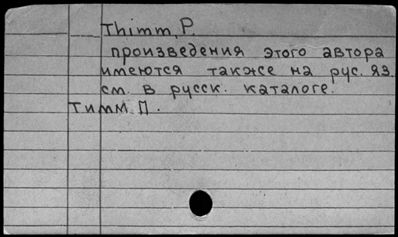 Thimm, P.
произведения этого автора
имеются также на рус. яз.
см. в русск. каталоге.
Тимм П.